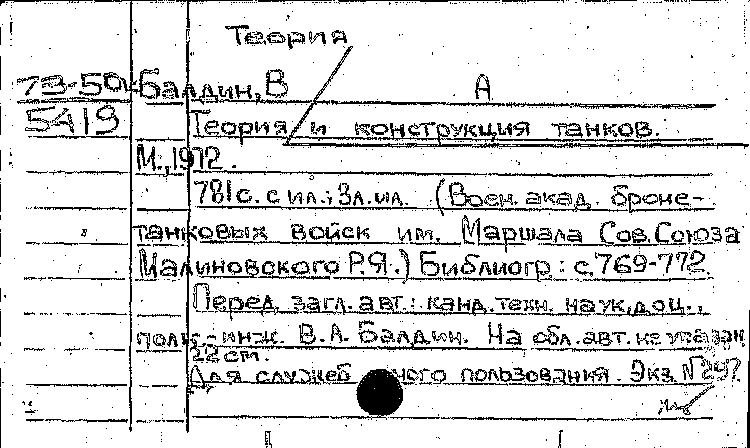 Теория
73-50к Балдин, В А
5419 Теория и конструкция танков.
М., 1972.
781с. с ил.; 3л.ил. (Воен. акад. броне-
танковых войск им. Маршала Сов. Союза
Малиновского Р.Я.) Библиогр: с.769-772.
Перед. загл. авт.: канд. техн. наук, доц.,
полк.-инж. В.А. Балдин. На обл. авт. не указан
22 cm.
Для служеб ного пользования. Экз. №297.